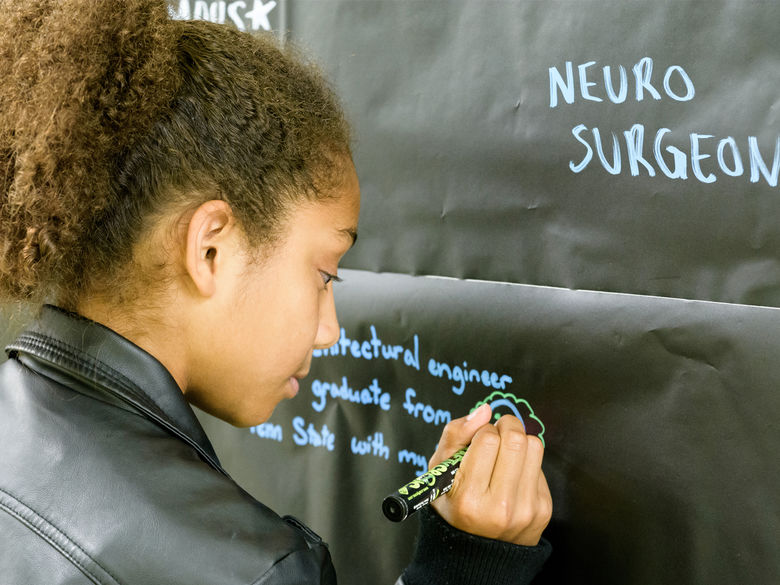 NEURO
SURGEON
architectural engineer
graduate from
Penn State with my